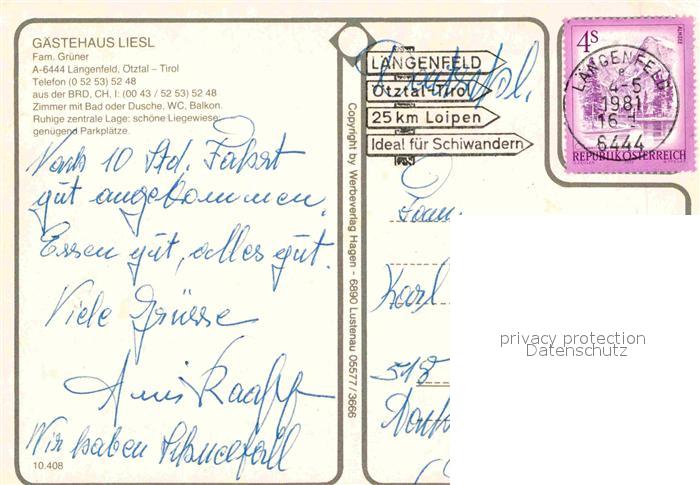 GÄSTEHAUS LIESL
Fam. Grüner
A-6444 Längenfeld, Ötztal – Tirol
Telefon (0 52 53) 52 48
aus der BRD, CH, I: (00 43 / 52 53) 52 48
Zimmer mit Bad oder Dusche, WC, Balkon.
Ruhige zentrale Lage: schöne Liegewiese;
genügend Parkplätze.
Nach 10 Std. Fahrt
gut angekommen.
Essen gut, alles gut.
Viele Grüsse
Wir haben Schneefall
10.408
Copyright by Werbeverlag Hagen - 6890 Lustenau 05577/3666
LÄNGENFELD
Ötztal-Tirol
25 km Loipen
Ideal für Schiwandern
4S
ALMSEE
REPUBLIK ÖSTERREICH
LÄNGENFELD
4-5
1981
16
6444
Fam.
Karl
518
privacy protection
Datenschutz